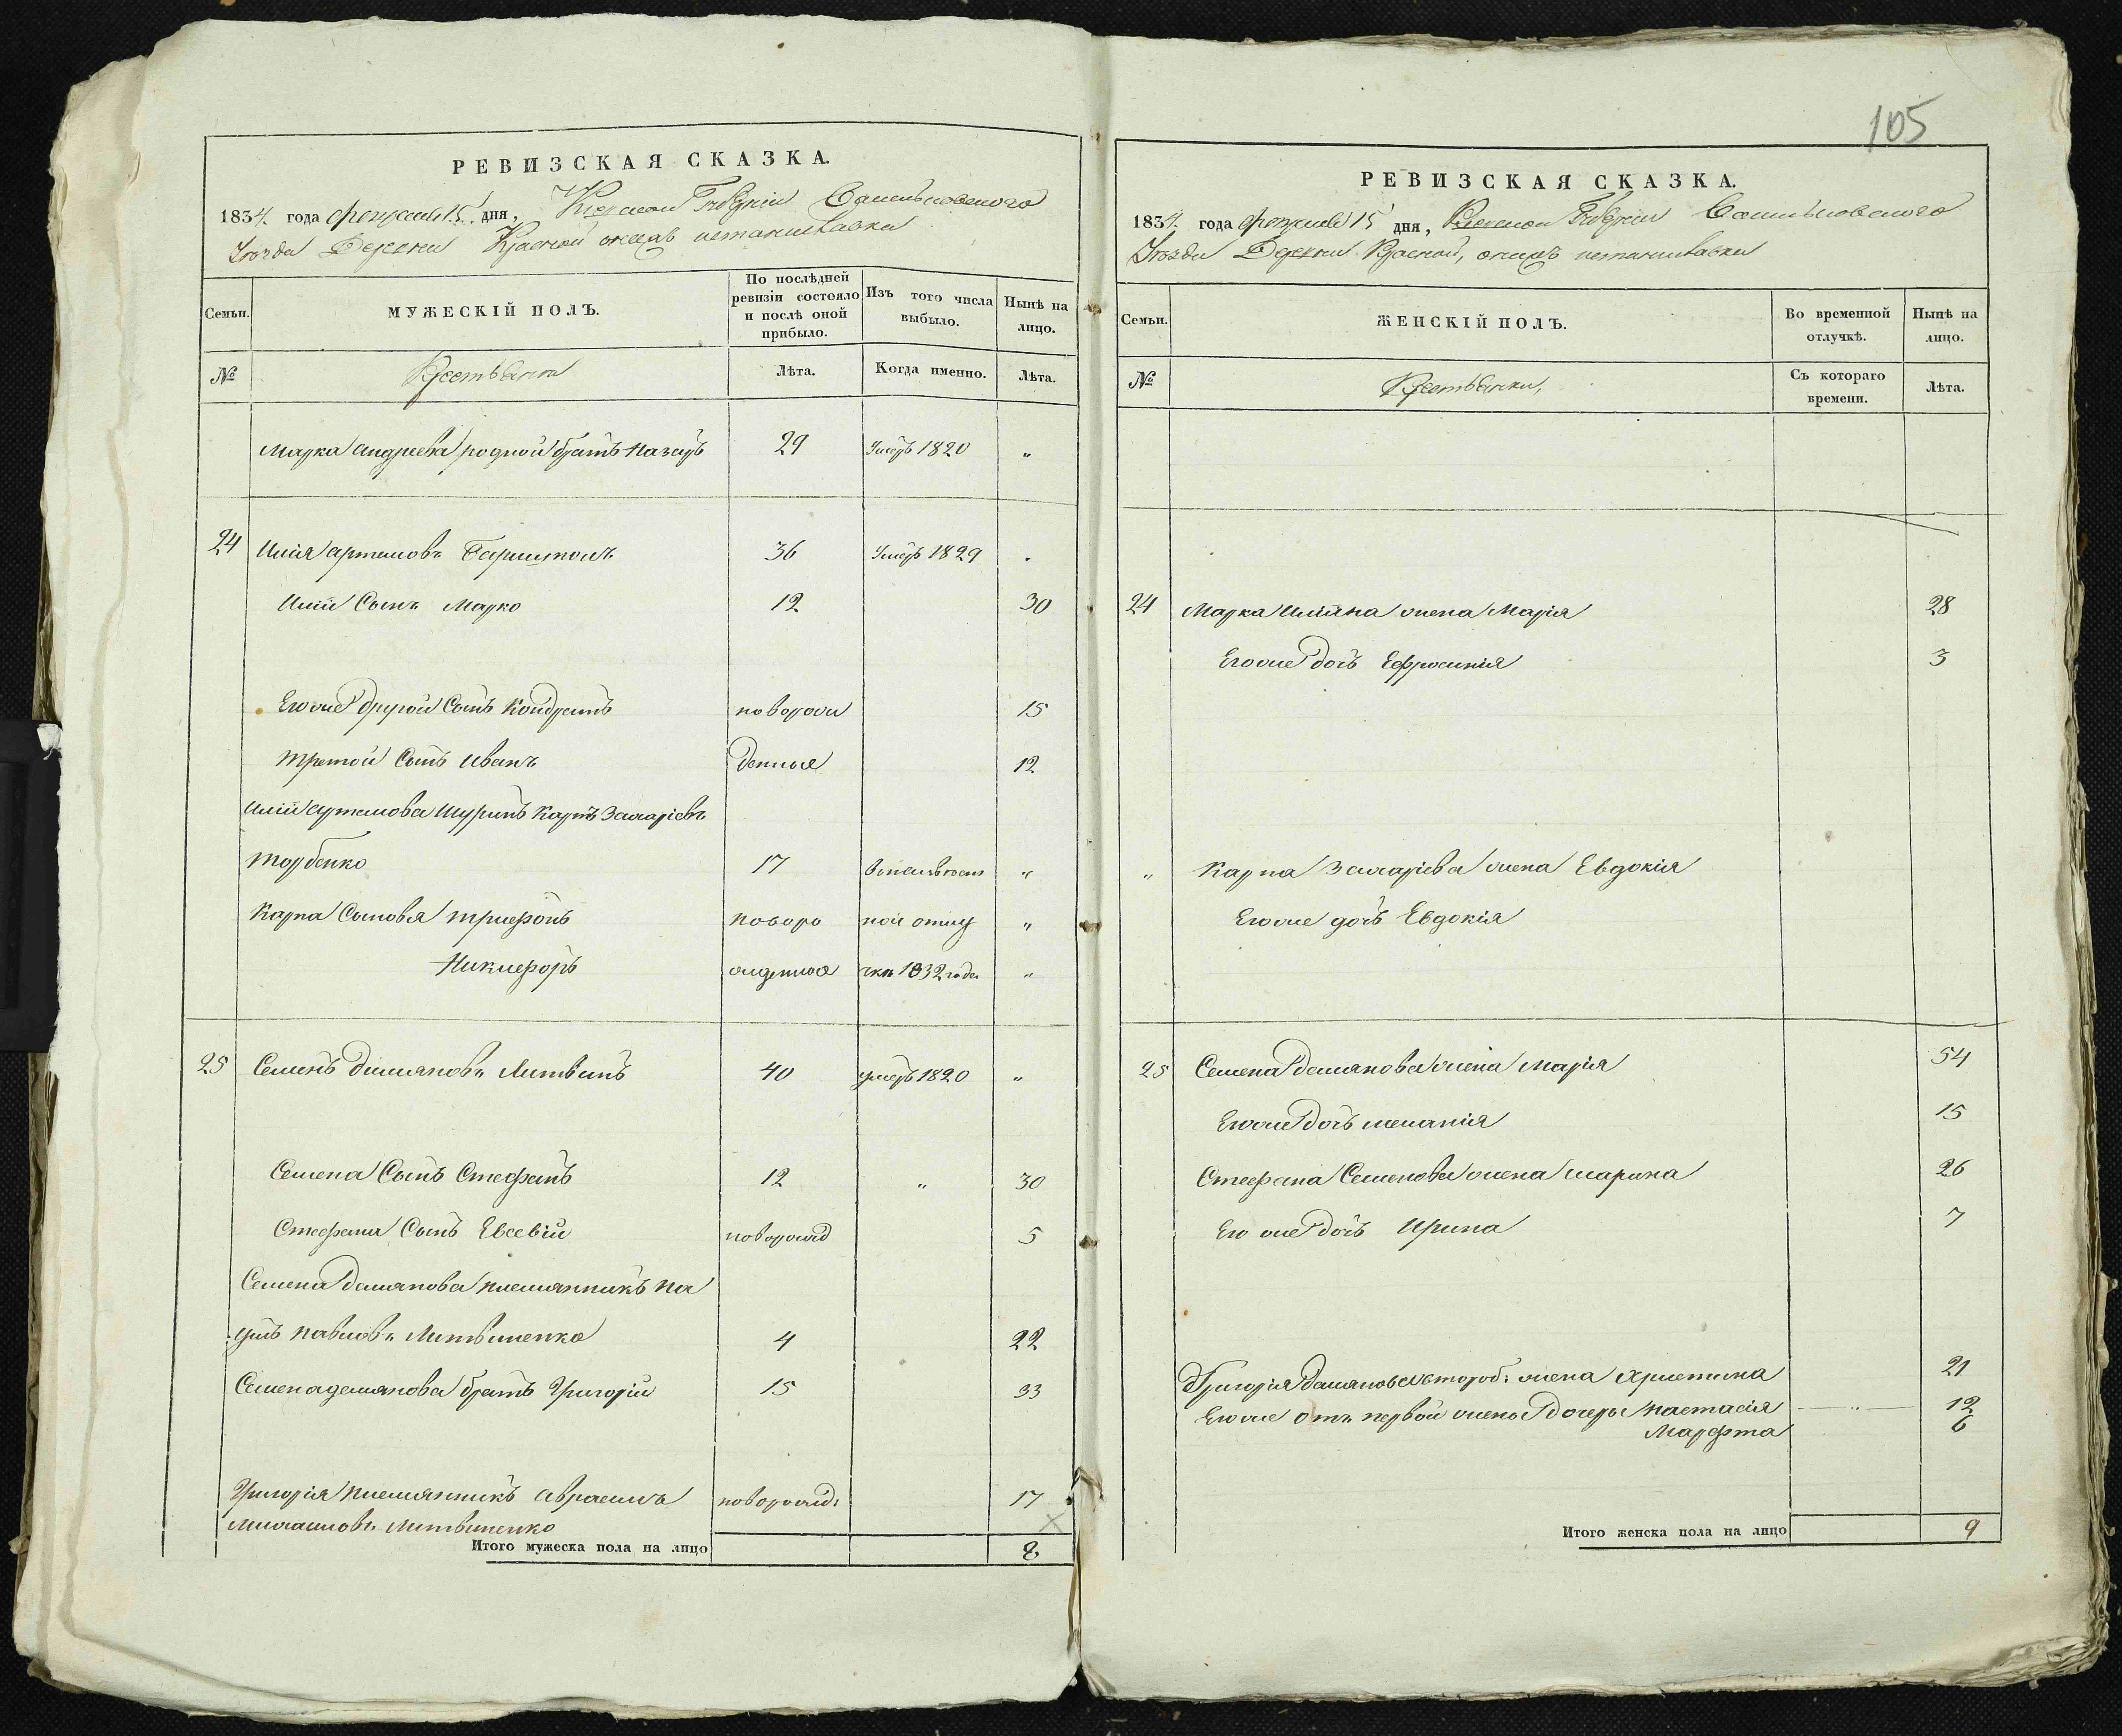 105
РЕВИЗСКАЯ СКАЗКА.
1834 года февраля 15 дня, Киевской Губернии Васильковского
Уезда Деревни Красной
Семьи. МУЖЕСКІЙ ПОЛЪ. По послѣдней ревизіи состояло и послѣ оной прибыло. Изъ того числа выбыло. Нынѣ на лицо.
№ Крестьяни Лѣта. Когда именно. Лѣта.
Марка Андреева родной братъ Назаръ 29 Умеръ 1820 „
24 Илія Артемовъ 36 Умеръ 1829 .
Иліи Сынъ Марко 12 30
Его же другой Сынъ Кондратъ новорож 15
третой Сынъ Иванъ денные 12
Иліи Артемова Шуринъ Карпъ Захаріевъ
Торбенко 17 „
Карпа Сыновя трифонъ новоро ной отлу „
Никифоръ жденные чки 1832 года „
25 Семенъ Демяновъ Литвинъ 40 умеръ 1820 „
Семена Сынъ Стефанъ 12 „ 30
Стефана Сынъ Евсевій новорожд 5
Семена Демянова племянникъ На
умъ Павловъ Литвиненко 4 22
Семена демянова братъ Григорій 15 33
Григорія племянникъ Авраамъ новорожд: 17
Михаиловъ Литвиненко
Итого мужеска пола на лицо 8
РЕВИЗСКАЯ СКАЗКА.
1834 года февраля 15 дня, Киевской Губернии Васильковского
Уезда Деревни Красной,
Семьи. ЖЕНСКІЙ ПОЛЪ. Во временной отлучкѣ. Нынѣ на лицо.
№ Крестьянки, Съ котораго времени. Лѣта.
24 Марка Иліина жена Марія 28
Его же дочь Ефросинія 3
„ Карпа Захаріева жена Евдокія
Его же дочь Евдокія
25 Семена Демянова жена Марія 54
Его же дочь меланія 15
Стефана Семенова жена марина 26
Его же дочь Ирина 7
Григорія Демянова второб: жена Христина 21
Его же отъ первой жены дочеры Настасія „ 12
Марфта 6
Итого женска пола на лицо 9